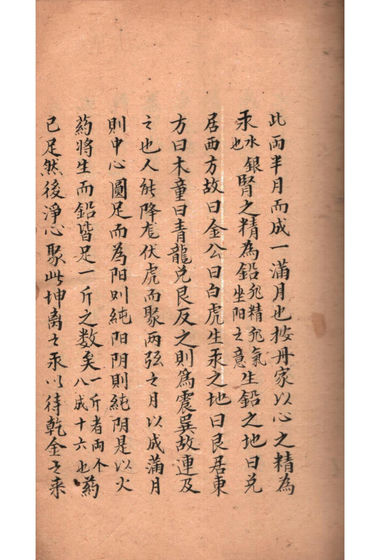 此兩半月而成一滿月也按丹家以心之精為
汞水銀也腎之精為鉛精氣坐阳之意生鉛之地曰兌
居西方故曰金公曰白虎生汞之地曰艮居東
方曰木童曰青龍兌艮反之則為震巽故連及
之也人能降龙伏虎而聚两弦之月以成滿月
則中心圓足而為阳则純阳阴則純阴是以火
药將生而鉛皆足一斤之数矣一斤者两个八成十六也药
已足然後淨心聚此坤离之汞以待乾金之来